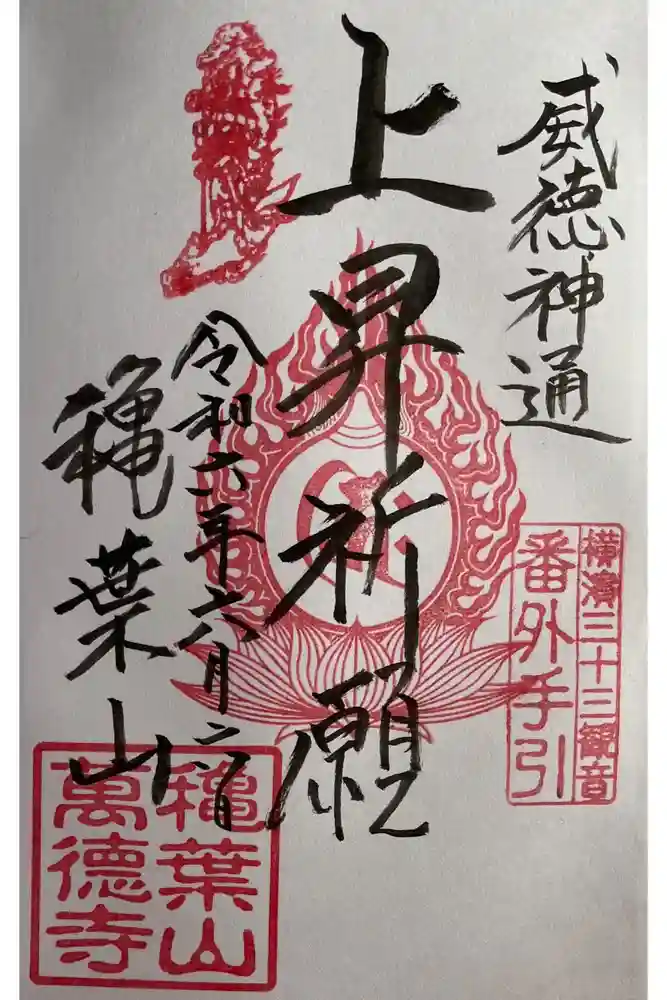 威徳神通
横濱三十三観音
番外手引
上昇祈願
令和六年六月
穐葉山
穐葉山
萬德寺